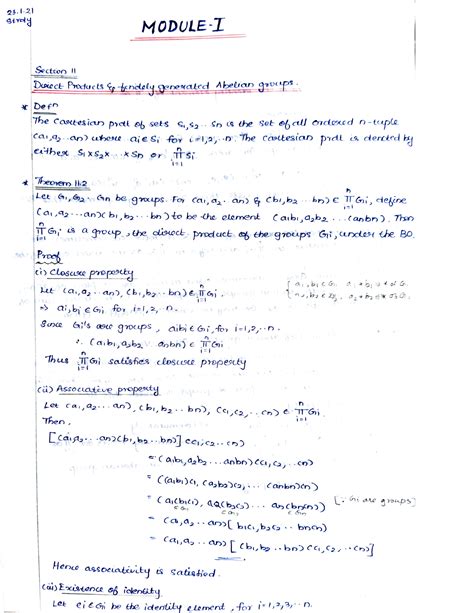 23.1.21
MODULE-I
Section 11
Direct Products & finitely generated Abelian groups.
* Defn
The Cartesian prdt of sets S1,S2.. Sn is the set of all ordered n-tuple
(a1,a2..an) where ai∈Si for i=1,2,..n. The Cartesian prdt is denoted by
either S1×S2×...×Sn or ∏_{i=1}^{n} Si
* Theorem 11.2
Let G1,G2 Gn be groups. For (a1,a2..an) & (b1,b2...bn) ∈ ∏_{i=1}^{n} Gi, define
(a1,a2...an)(b1,b2...bn) to be the element (a1b1,a2b2...(anbn). Then
∏_{i=1}^{n} Gi is a group, the direct product of the groups Gi, under the BO.
Proof
(i) Closure property
Let (a1,a2...an), (b1,b2...bn) ∈ ∏_{i=1}^{n} Gi
⇒ ai,bi ∈ Gi for i=1,2,..n.
Since Gi's are groups, aibi ∈ Gi, for i=1,2,..n.
∴ (a1b1,a2b2 anbn) ∈ ∏_{i=1}^{n} Gi
Thus ∏_{i=1}^{n} Gi satisfies closure property
(ii) Associative property
Let (a1,a2...an), (b1,b2...bn), (c1,c2,..cn) ∈ ∏_{i=1}^{n} Gi.
Then,
[(a1,a2...an)(b1,b2...bn)](c1,c2..cn)
= (a1b1,a2b2...anbn)(c1,c2,..cn)
= ((a1b1)c1,(a2b2)c2,...(anbn)cn)
= (a1(b1c1), a2(b2c2)... an(bncn)) [∵ Gi are groups]
= (a1,a2...an)[b1c1,b2c2...bncn)
= (a1,a2,...an)[(b1,b2..bn)(c1,c2,..cn)]
Hence associativity is satisfied.
(iii) Existence of identity
Let ei∈Gi be the identity element, for i=1,2,3,..n.